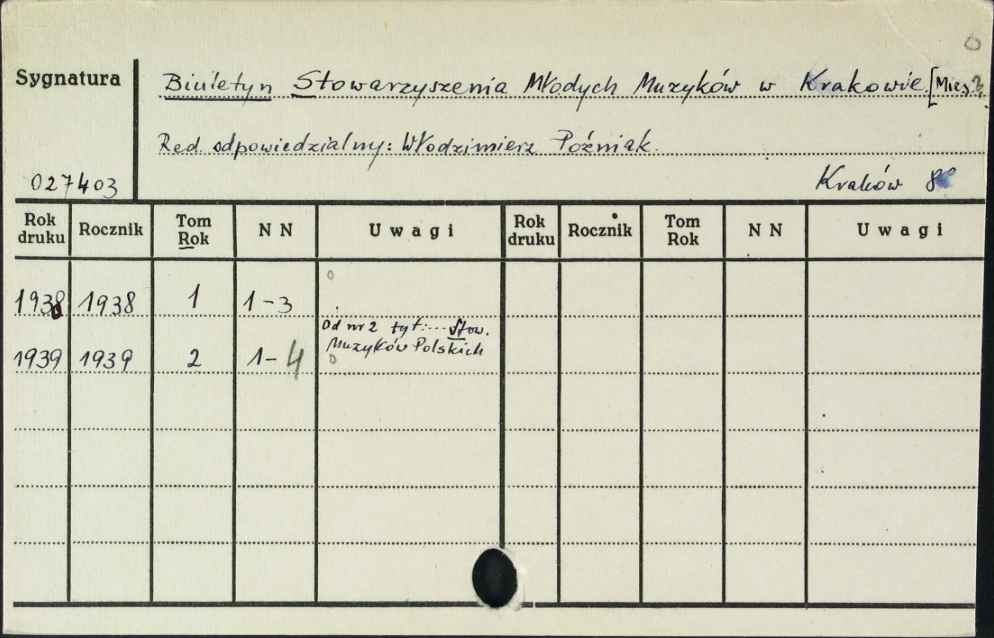 Sygnatura
Biuletyn Stowarzyszenia Młodych Muzyków w Krakowie. [Mies.?]
Red. odpowiedzialny: Włodzimierz Poźniak.
027403
Kraków 8°
Rok druku Rocznik Tom Rok NN Uwagi Rok druku Rocznik Tom Rok NN Uwagi
1938 1938 1 1-3
Od nr 2 tyt.: ... Stow.
Muzyków Polskich
1939 1939 2 1-4